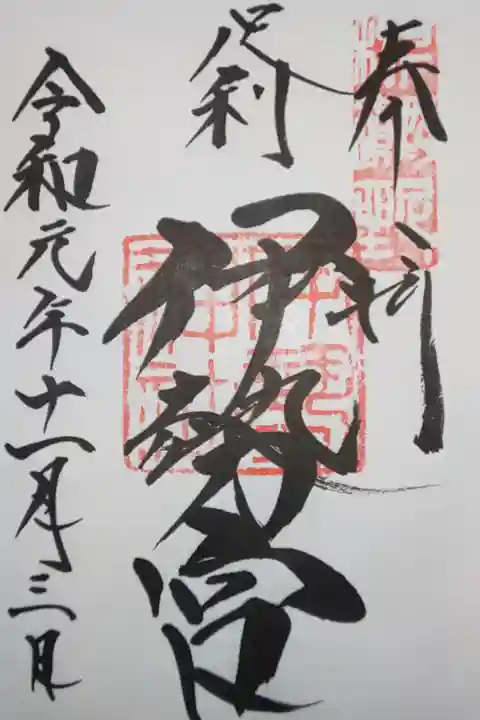 奉拝
足利
伊勢宮
令和元年十一月三日